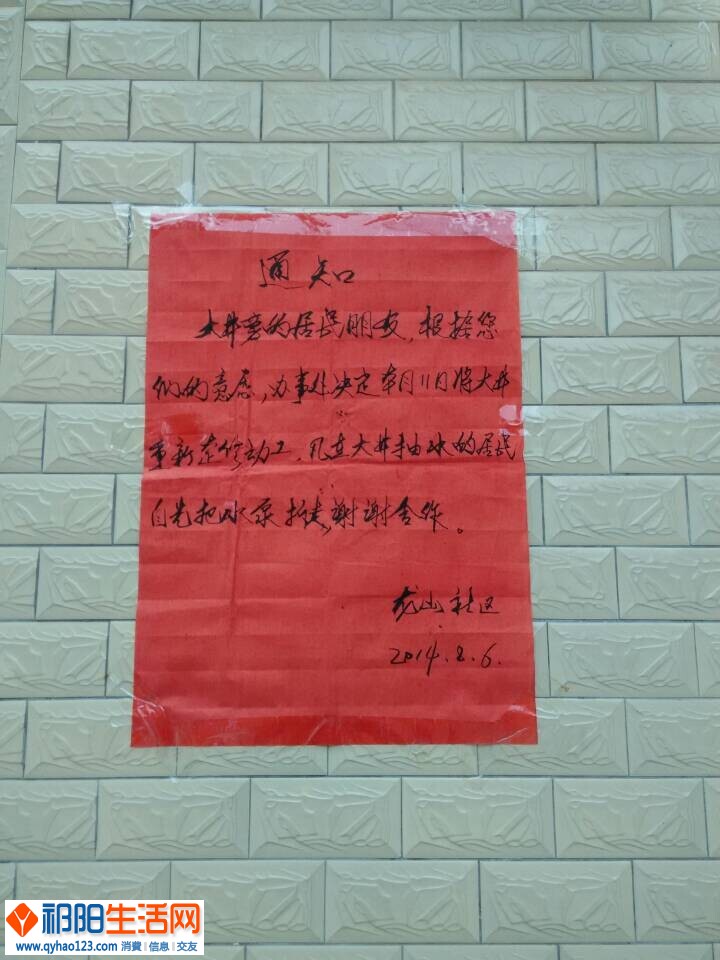 通知
大井旁的居民朋友，根据您
们的意愿，办事处决定本月11日将大井
重新整修动工，凡在大井抽水的居民
自先把水泵拆走，谢谢合作。
龙山社区
2014.8.6.
祁阳生活网
www.qyhao123.com 消費 | 信息 | 交友